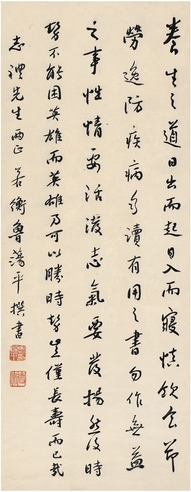 養生之道日出而起日入而寢慎飲食節
勞逸防疾病多讀有用之書勿作無益
之事性情要活潑志氣要發揚然後時
勢不能困英雄而英雄乃可以勝時勢豈僅長壽而已哉
志禮先生兩正 若衡魯蕩平撰書